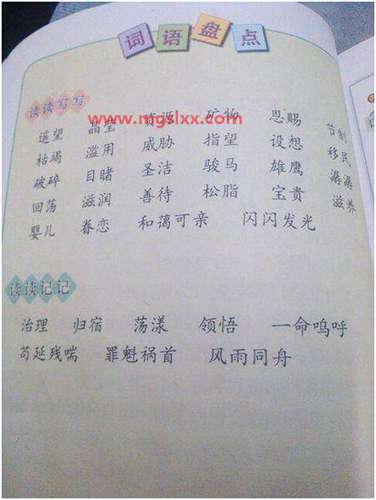 词语盘点
读读写写
遥望 晶莹 资源 矿物 恩赐 节制
枯竭 滥用 威胁 指望 设想 移民
破碎 目睹 圣洁 骏马 雄鹰 潺潺
回荡 滋润 善待 松脂 宝贵 滋养
婴儿 眷恋 和蔼可亲 闪闪发光
www.mgslxx.com
读读记记
治理 归宿 荡漾 领悟 一命呜呼
苟延残喘 罪魁祸首 风雨同舟